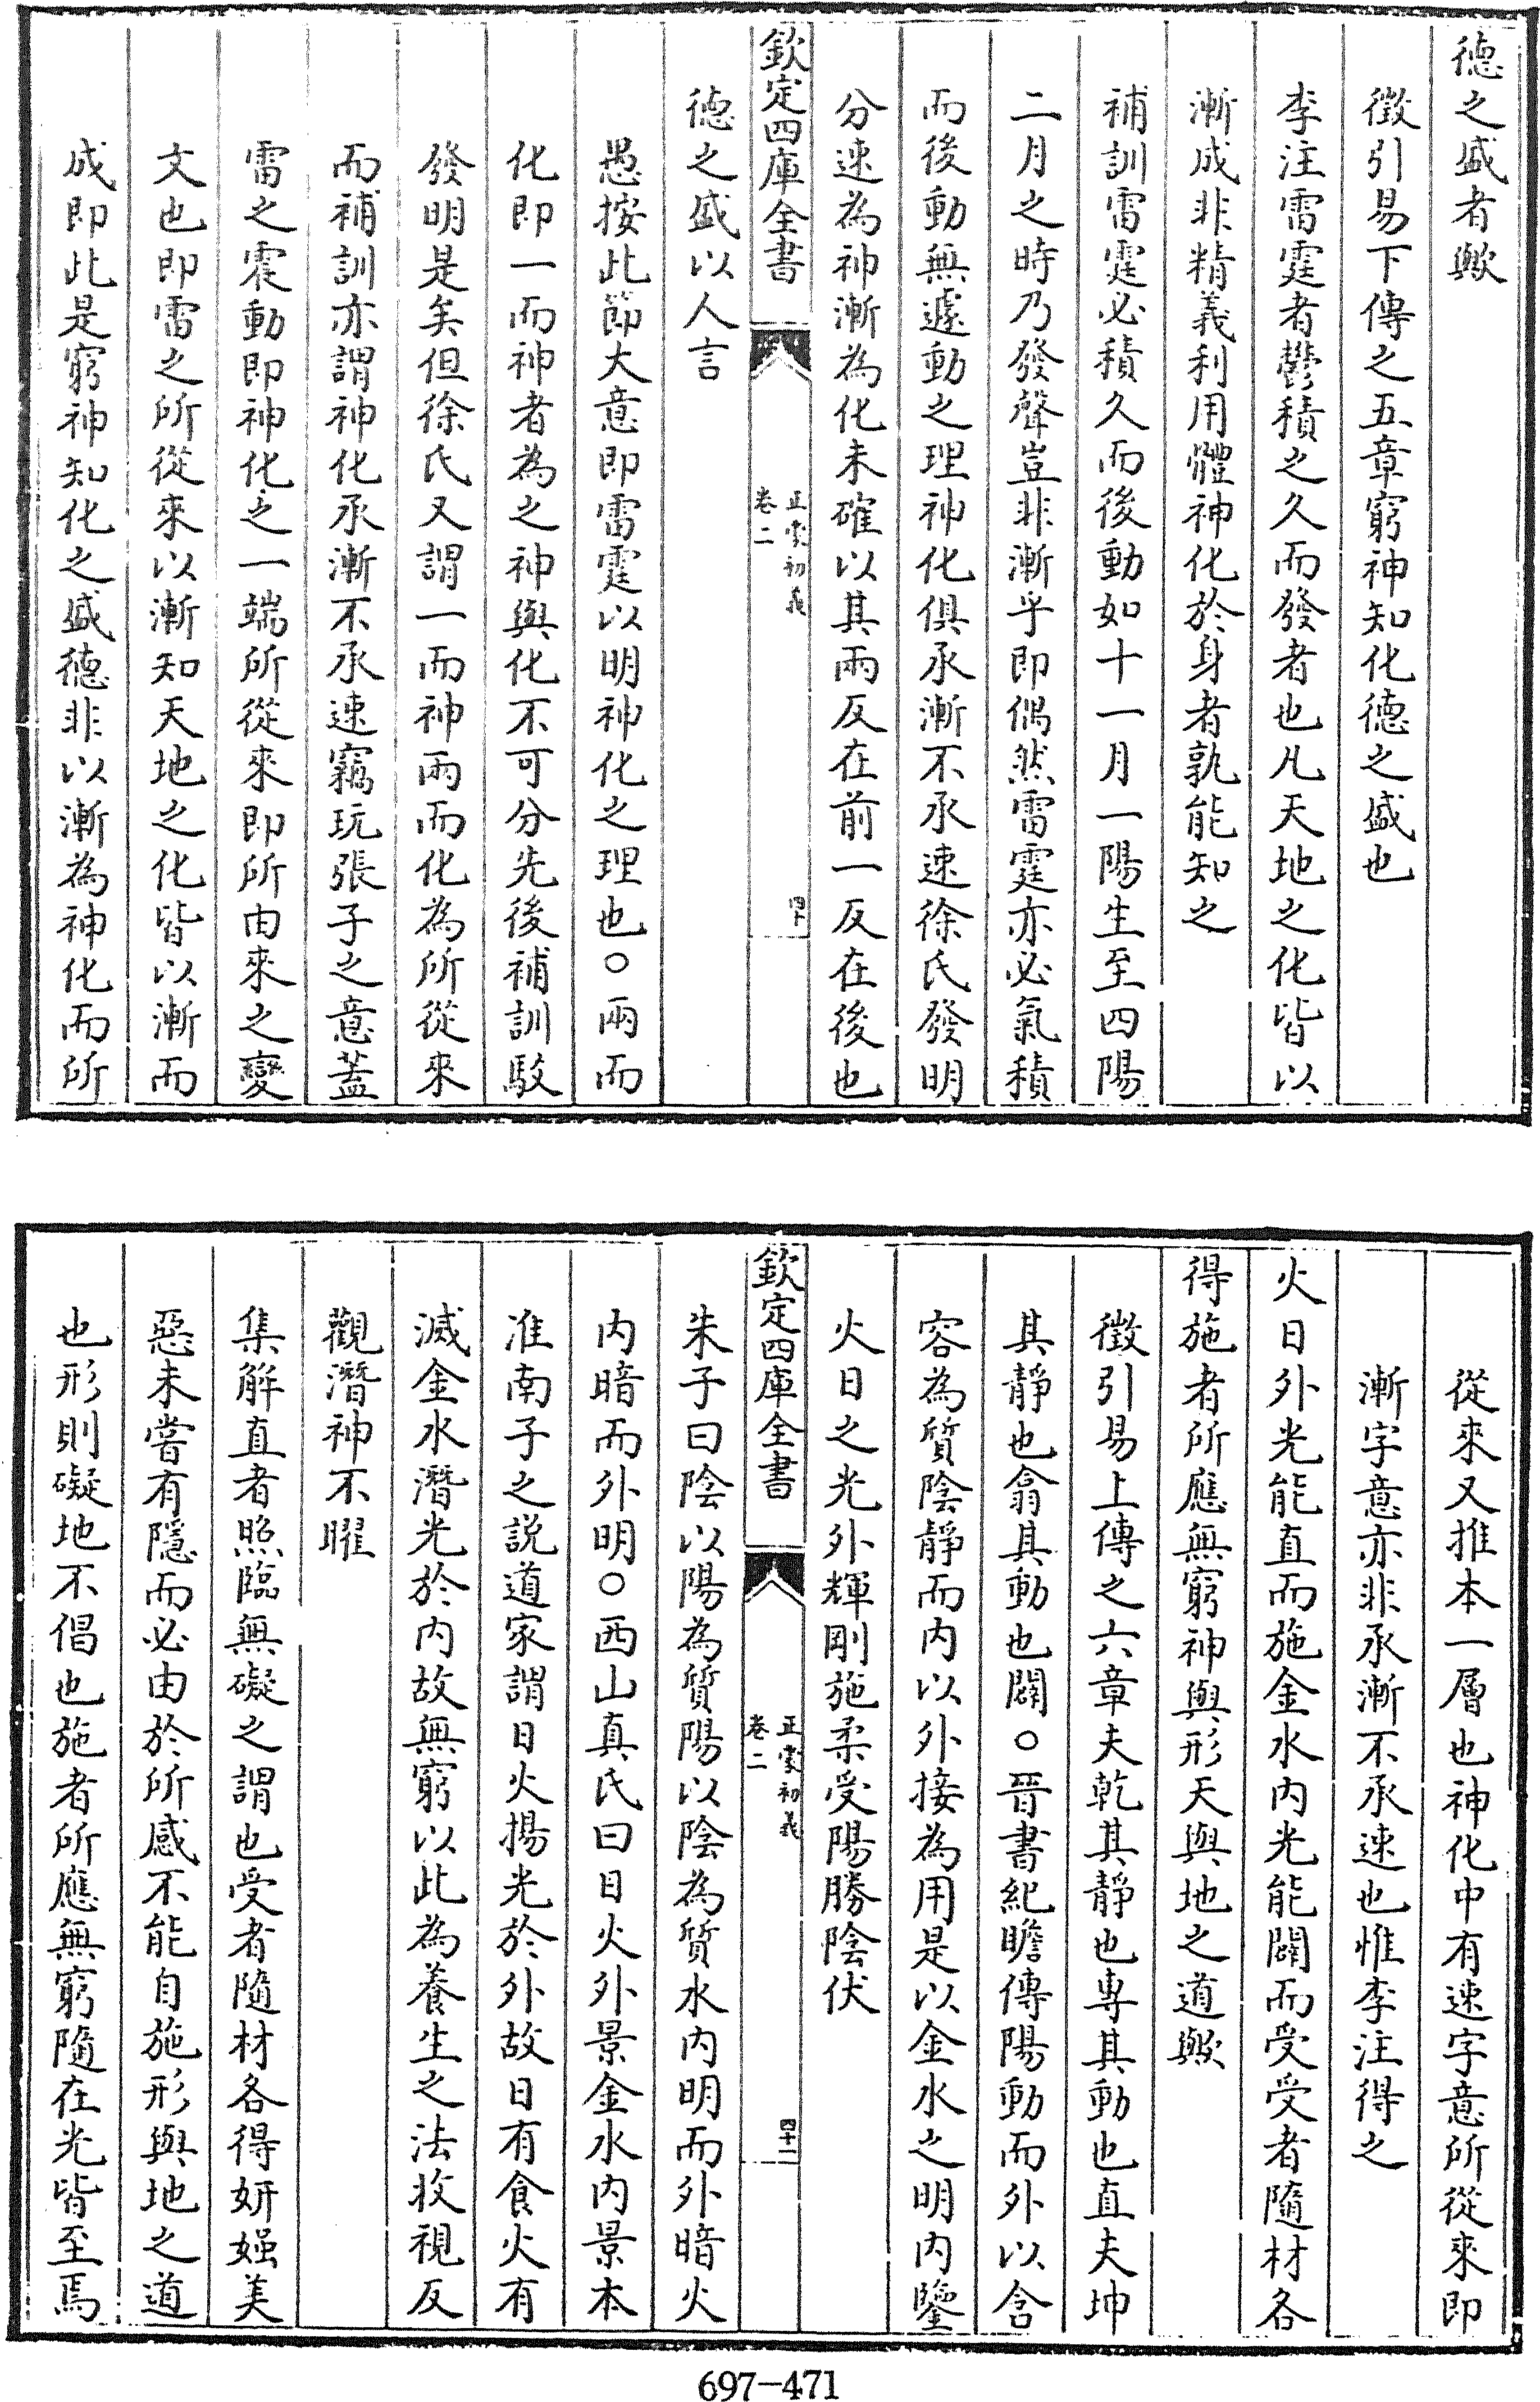 德之盛者歟
徵引易下傳之五章窮神知化德之盛也
李注雷霆者鬱積之久而發者也凡天地之化皆以
漸成非精義利用體神化於身者孰能知之
補訓雷霆必積久而後動如十一月一陽生至四陽
二月之時乃發聲豈非漸乎即偶然雷霆亦必氣積
而後動無遽動之理神化俱承漸不承速徐氏發明
分速為神漸為化未確以其兩反在前一反在後也
欽定四庫全書
正蒙初義
卷二
四十
德之盛以人言
愚按此節大意即雷霆以明神化之理也○兩而
化即一而神者為之神與化不可分先後補訓駁
發明是矣但徐氏又謂一而神兩而化為所從來
而補訓亦謂神化承漸不承速竊玩張子之意蓋
雷之震動即神化之一端所從來即所由來之變
文也即雷之所從來以漸知天地之化皆以漸而
成即此是窮神知化之盛德非以漸為神化而所
從來又推本一層也神化中有速字意所從來即
漸字意亦非承漸不承速也惟李注得之
火日外光能直而施金水內光能闢而受受者隨材各
得施者所應無窮神與形天與地之道歟
徵引易上傳之六章夫乾其靜也專其動也直夫坤
其靜也翕其動也闢○晉書紀瞻傳陽動而外以含
容為質陰靜而內以外接為用是以金水之明內鑒
火日之光外輝剛施柔受陽勝陰伏
欽定四庫全書
正蒙初義
卷二
四十一
朱子曰陰以陽為質陽以陰為質水內明而外暗火
內暗而外明○西山真氏曰日火外景金水內景本
淮南子之説道家謂日火揚光於外故日有食火有
滅金水潛光於內故無窮以此為養生之法收視反
觀潛神不曜
集解直者照臨無礙之謂也受者隨材各得妍媸美
惡未嘗有隱而必由於所感不能自施形與地之道
也形則礙地不倡也施者所應無窮隨在光皆至焉
697-471